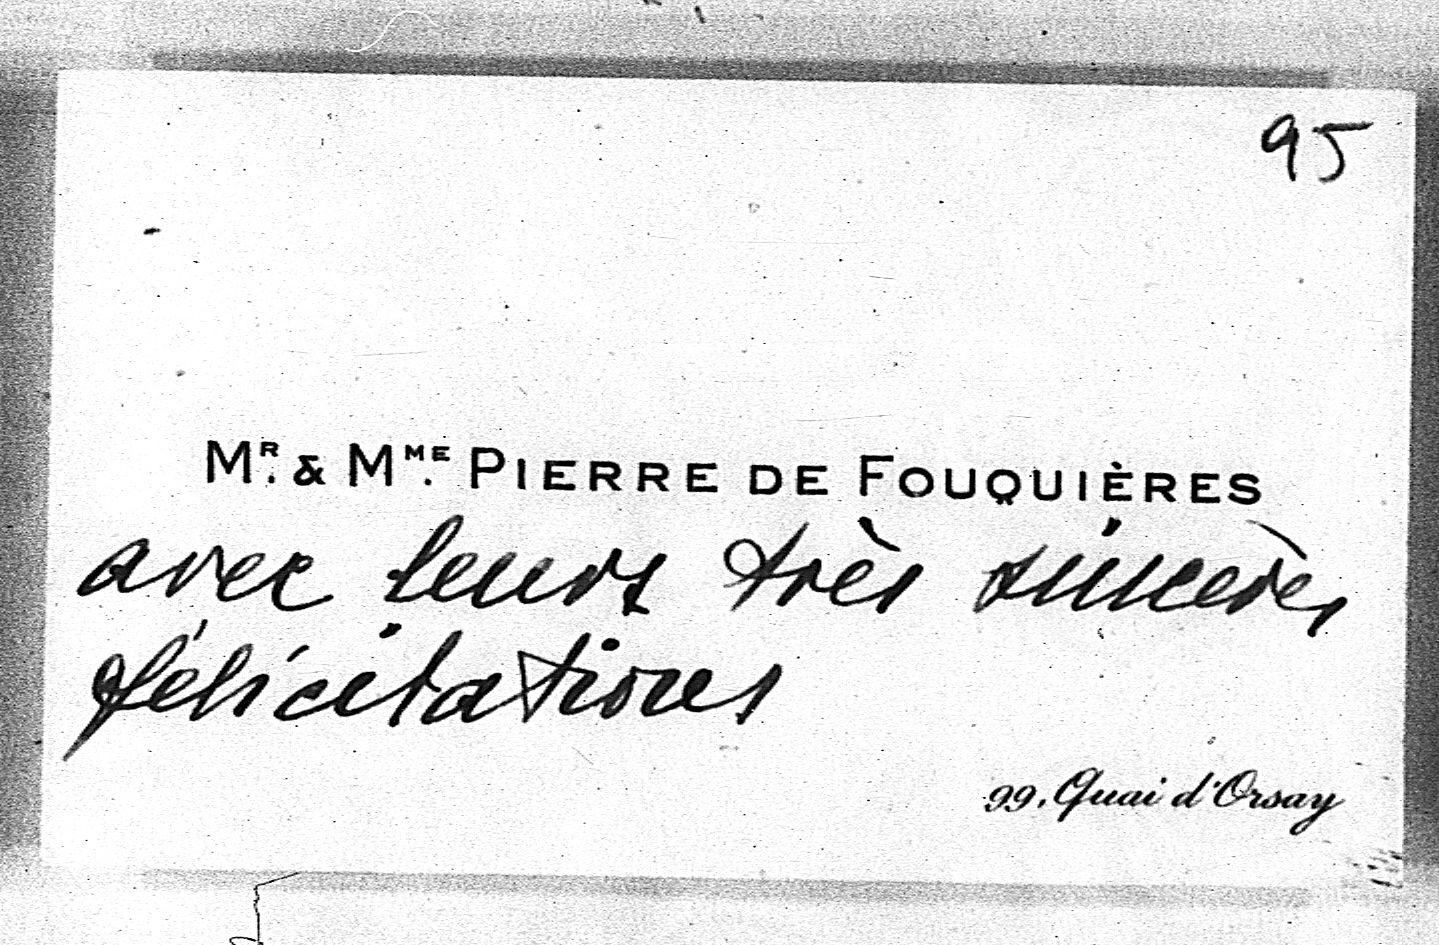 95
Mr. & Mme. Pierre de Fouquières
avec leurs très sincères
félicitations
99, Quai d'Orsay